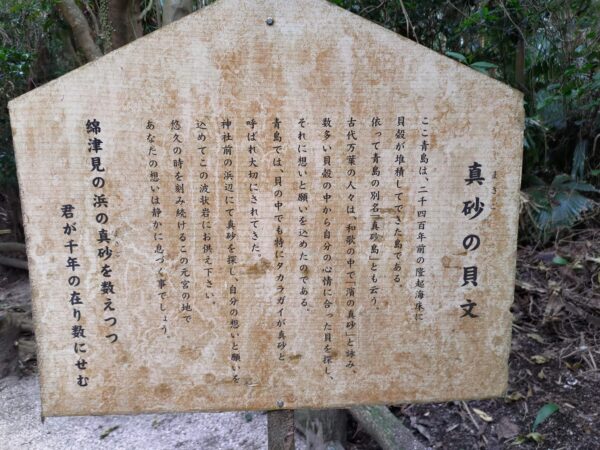 真砂の貝文
まさご
ここ青島は、二千四百年前の隆起海床に
貝殻が堆積してできた島である。
依って青島の別名「真砂島」とも云う。
古代万葉の人々は、和歌の中で「濱の真砂」と詠み、
数多い貝殻の中から自分の心情に合った貝を探し、
それに想いと願いを込めたのである。
青島では、貝の中でも特にタカラガイが真砂と
呼ばれ大切にされてきた。
神社前の浜辺にて真砂を探し、自分の想いと願いを
込めてこの波状岩にお供え下さい。
悠久の時を刻み続けるこの元宮の地で
あなたの想いは静かに息づく事でしょう。
綿津見の浜の真砂を数えつつ
君が千年の在り数にせむ